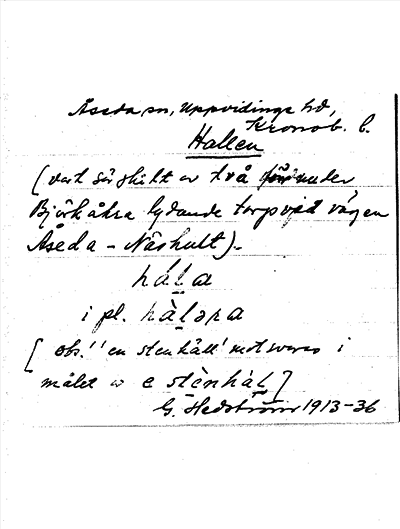 Åseda sn, Uppvidinge hd,
Kronob. l.
Hallen
(vart särskilt av två under
Björkåkra lydande torp vid vägen
Åseda - Näshult).
háḷa
i pl. hàḷəna
[obs. "en stenhäll" motsvaras i
målet av e stènhàḷ]
G. Hedström 1913-36